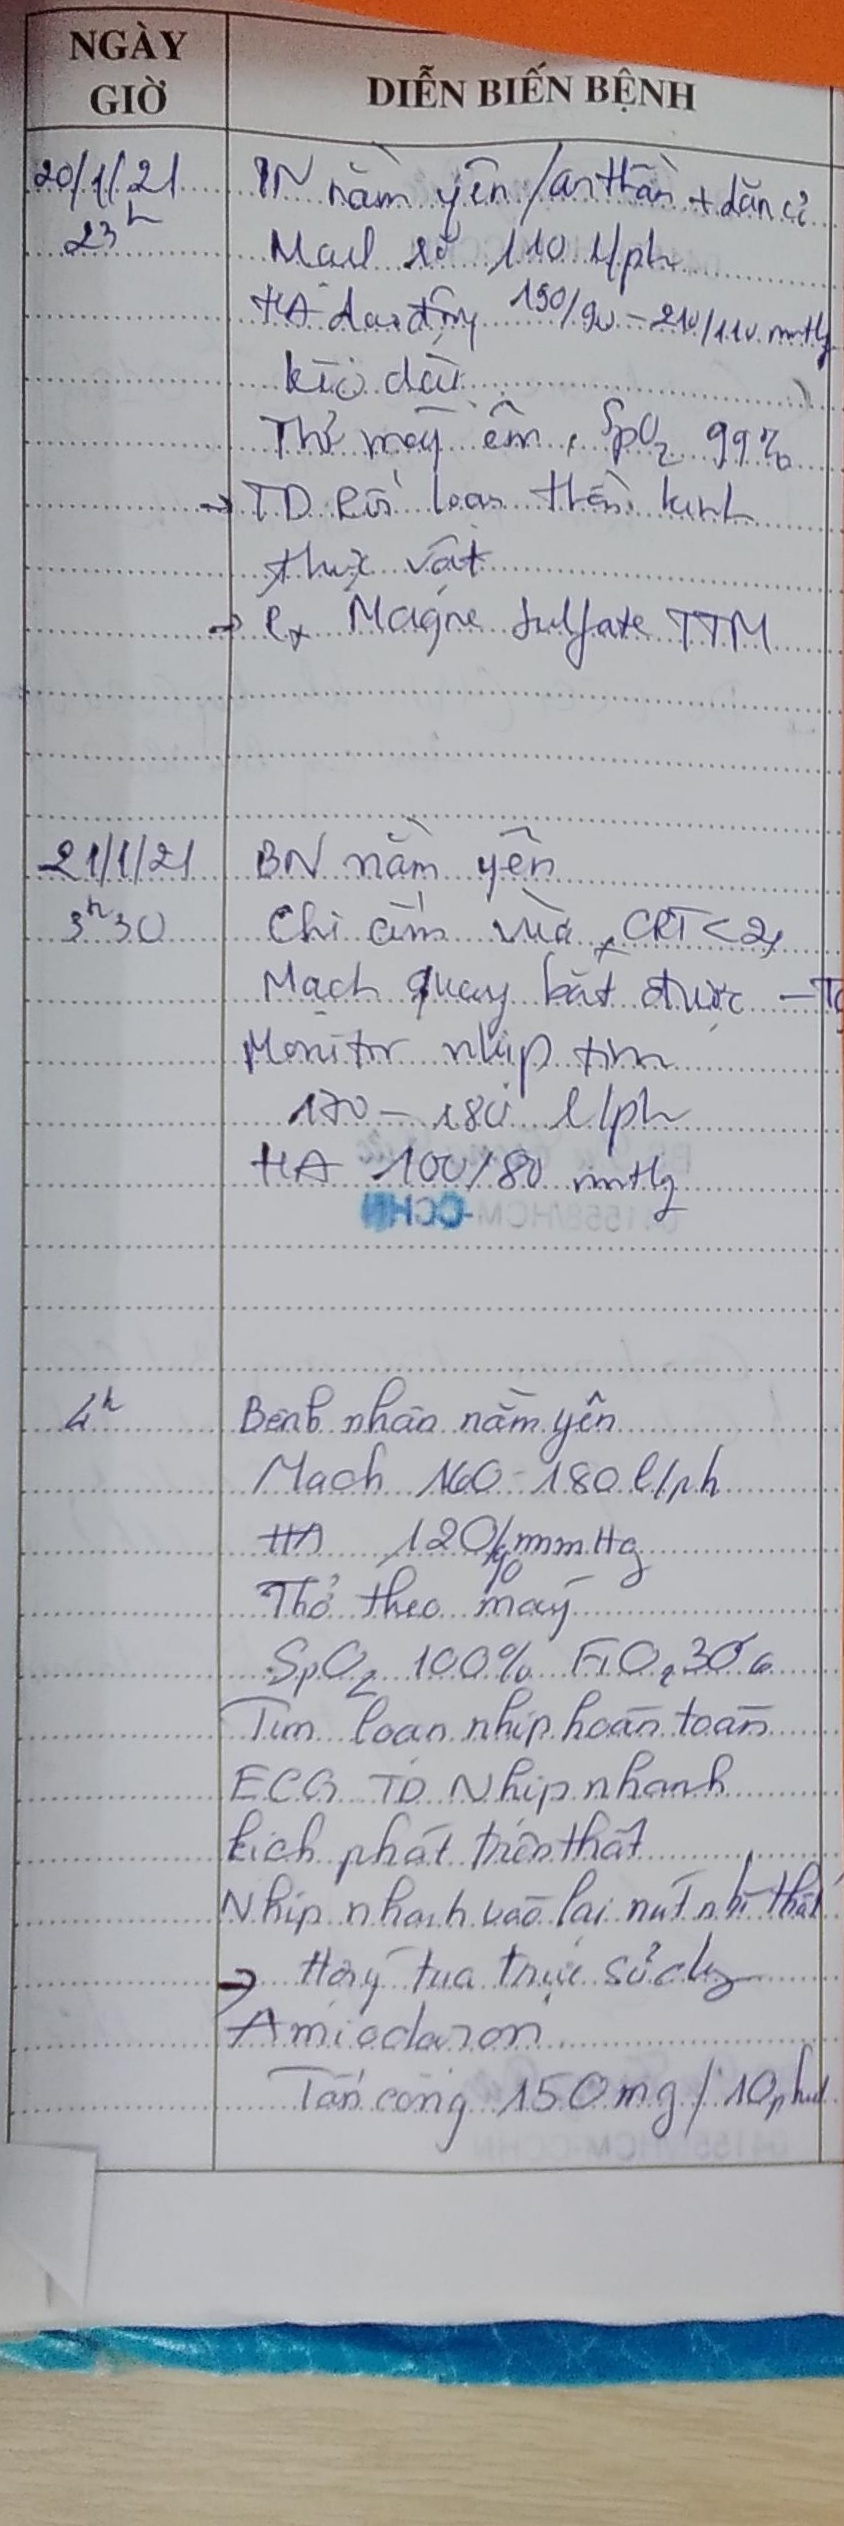 NGÀY
GIỜ
DIỄN BIẾN BỆNH
20/1/21
23h
BN nằm yên / an thần + dãn cơ
Mạch rõ 110 l/ph
HA dao động 190/90 - 210/110 mmHg
kéo dài
Thở máy êm, SpO2 99%
→ TD Rối loạn thần kinh
thực vật
→ Rx Magne Sulfate TTM
21/1/21
3h30
BN nằm yên
Chi ấm vừa, CRT < 2s
Mạch quay bắt được
Monitor nhịp tim
170 - 180 l/ph
HA 100/80 mmHg
CCHN
4h
Bệnh nhân nằm yên
Mạch 160 - 180 l/ph
HA 120/90 mmHg
Thở theo máy
SpO2 100% FiO2 30%
Tim loạn nhịp hoàn toàn
ECG TD Nhịp nhanh
kịch phát trên thất
Nhịp nhanh vào lại nút nhĩ thất
→ Hội ý tua trực sử dụng
Amiodaron
Tấn công 150mg / 10 phút